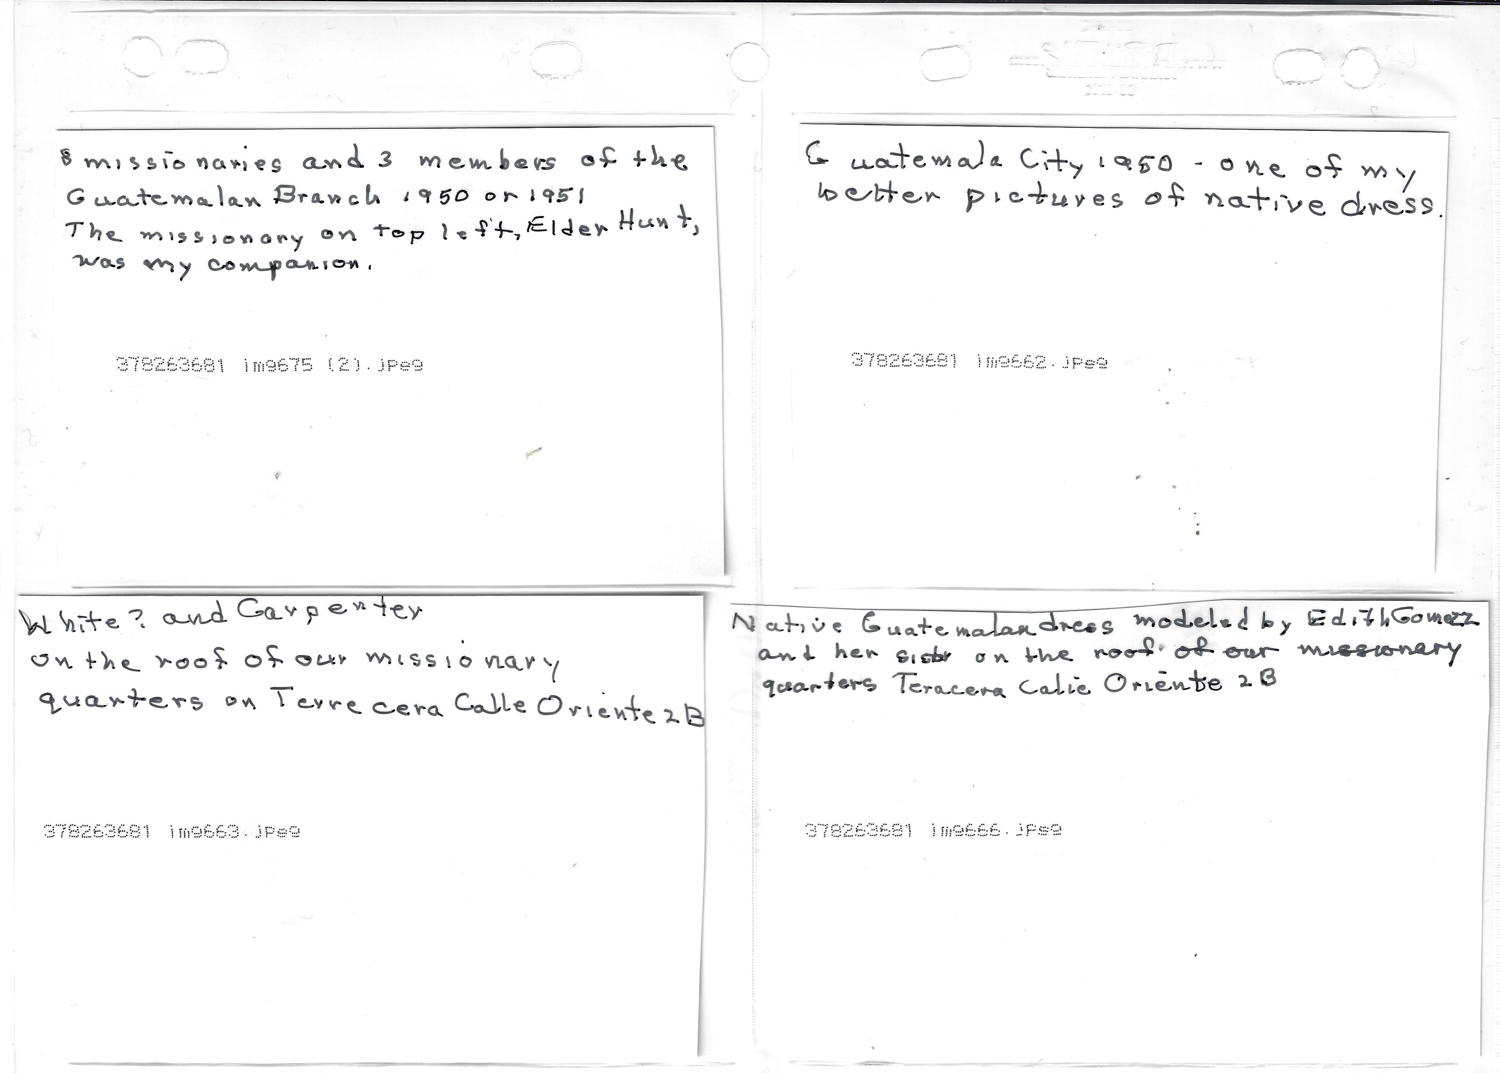 8 missionaries and 3 members of the
Guatemalan Branch 1950 or 1951
The missionary on top left, Elder Hunt,
was my companion.
378263681 img675 (2).jpeg
Guatemala City 1950 - one of my
better pictures of native dress.
378263681 img662.jpeg
White? and Carpenter
on the roof of our missionary
quarters on Terrecera Calle Oriente 2B
378263681 img663.jpeg
Native Guatemalan dress modeled by Edith Gomezz
and her sistr on the roof of our missionary
quarters Teracera Calie Oriente 2B
378263681 img666.jpeg